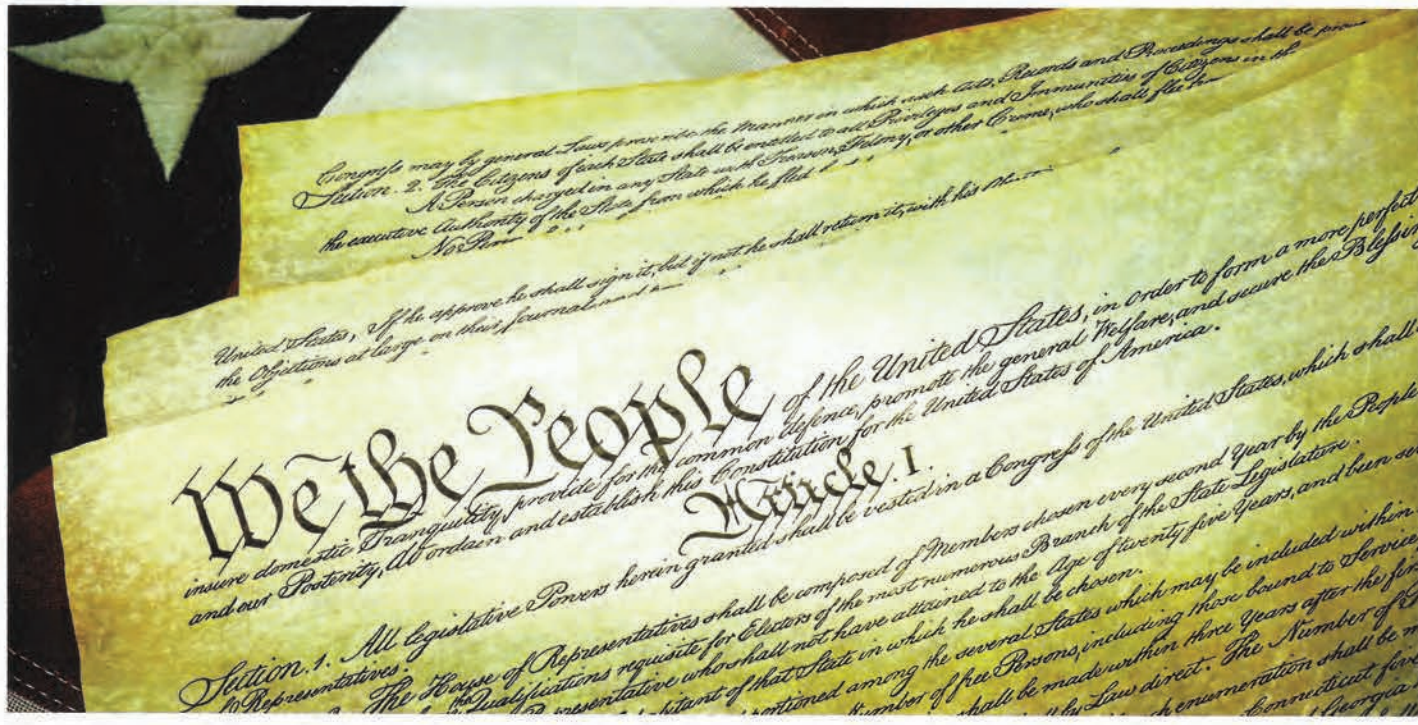 Congreſs may by general Laws prescribe the Manner in which such Acts, Records and Proceedings shall be prov
Section. 2. The Citizens of each State shall be entitled to all Privileges and Immunities of Citizens in th
A Person charged in any State with Treason, Felony, or other Crime, who shall flee
the executive Authority of the State from which he fled
No Person
United States, If he approve he shall sign it, but if not he shall return it, with his
the Objections at large on their Journal, and
We the People of the United States, in order to form a more perfect
insure domestic Tranquility, provide for the common defence, promote the general Welfare, and secure the Bleſsing
and our Posterity, do ordain and establish this Constitution for the United States of America.
Article. I.
Section. 1. All legislative Powers herein granted shall be vested in a Congreſs of the United States, which shall
Representatives.
The House of Representatives shall be composed of Members chosen every second Year by the People
the Qualifications requisite for Electors of the most numerous Branch of the State Legislature.
Representative who shall not have attained to the Age of twenty five Years, and been
habitant of that State in which he shall be chosen.
portioned among the several States which may be included within
Number of free Persons, including those bound to Service
shall be made within three Years after the first
by Law direct. The Number of
enumeration shall be m
Connecticut five
Georgia